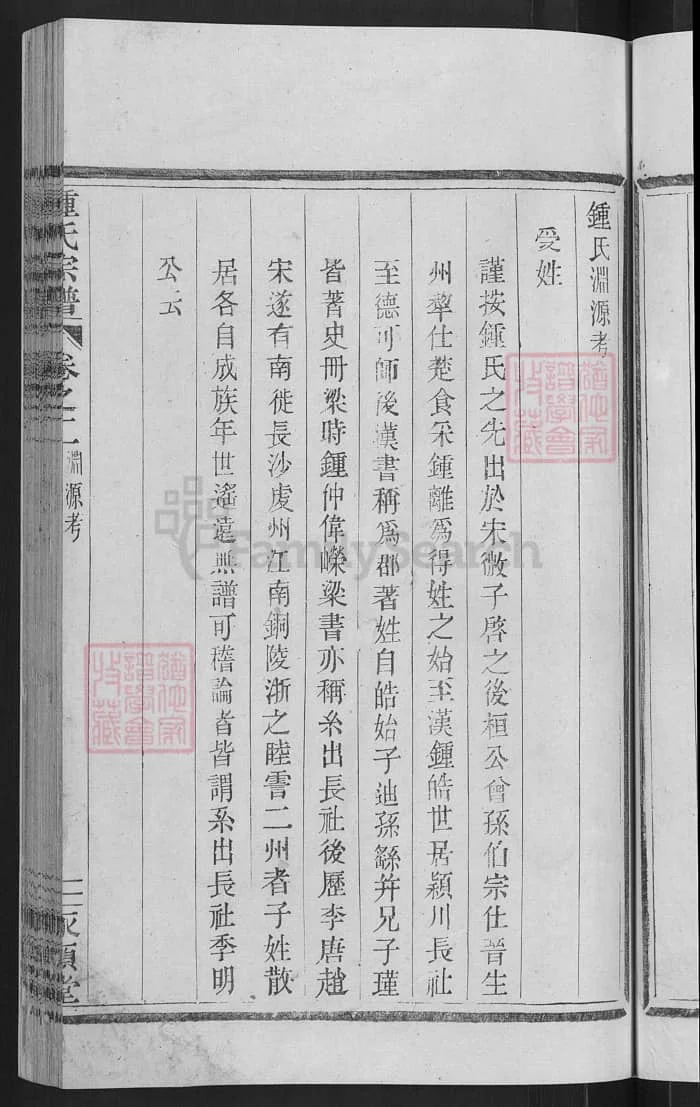 鍾氏淵源考
受姓
謹按鍾氏之先出於宋微子啓之後桓公曾孫伯宗仕晉生
州犂仕楚食采鍾離爲得姓之始至漢鍾皓世居潁川長社
至德可師後漢書稱爲郡著姓自皓始子迪孫繇并兄子瑾
皆著史冊梁時鍾仲偉嶸梁書亦稱系出長社後歷李唐趙
宋遂有南徙長沙虔州江南銅陵浙之睦霅二州者子姓散
居各自成族年世遙遠無譜可稽論者皆謂系出長社季明
公云
鍾氏宗譜 卷之二 淵源考
堂
FamilySearch
猶他家譜學會收藏
猶他家譜學會收藏